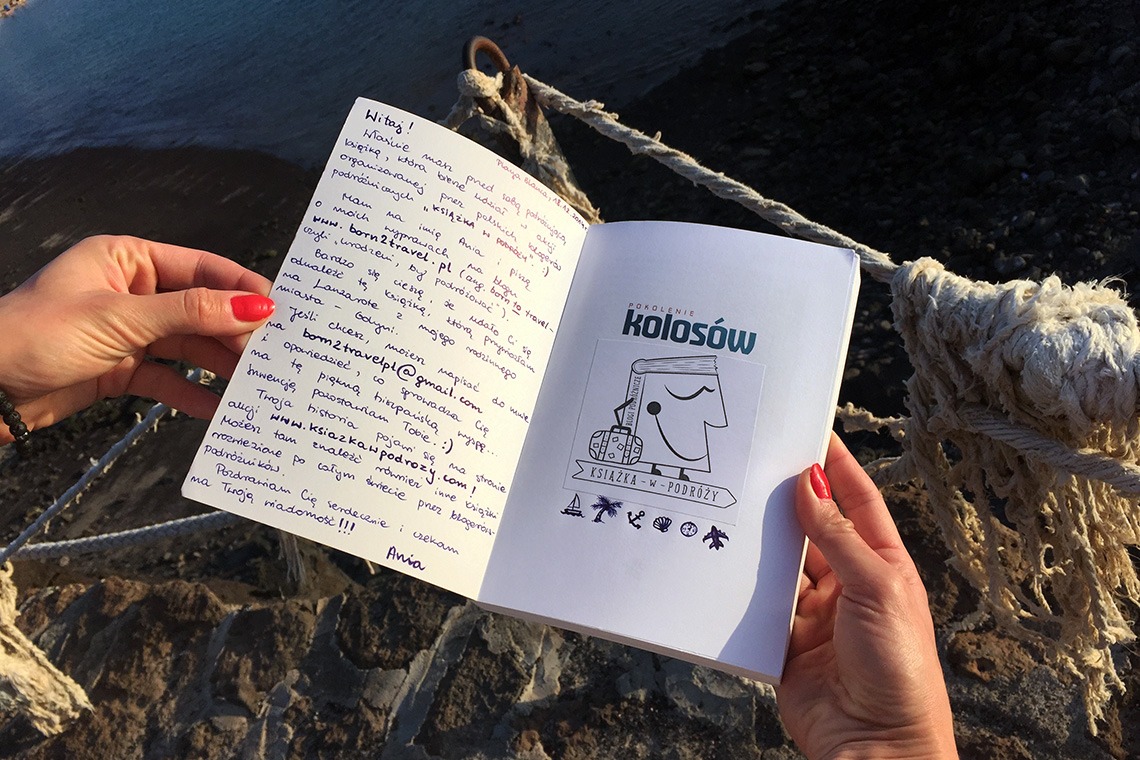 Witaj!
Playa Blanca, 18.12.
Właśnie masz przed sobą podróżującą
książkę, która bierze udział w akcji
organizowanej przez polskich blogerów
podróżniczych „KSIĄŻKA W PODRÓŻY" :)
Mam na imię Ania i piszę
o moich wyprawach na blogu
www.born2travel.pl (ang. born to travel-
czyli „urodzeni, by podróżować").
Bardzo się cieszę, że udało Ci się
odnaleźć tę książkę, którą przywiozłam
na Lanzarote z mojego rodzinnego
miasta – Gdyni.
Jeśli chcesz, możesz napisać do mnie
na born2travelpl@gmail.com
i opowiedzieć, co sprowadza Cię
na tę piękną hiszpańską wyspę...
Inwencję pozostawiam Tobie. :)
Twoja historia pojawi się na stronie
akcji www.ksiazkawpodrozy.com!
Możesz tam znaleźć również inne książki
rozmieszone po całym świecie przez blogerów-
podróżników.
Pozdrawiam Cię serdecznie i czekam
na Twoją wiadomość!!!
Ania
POKOLENIE
kolosów
BLOGI PODRÓŻNICZE
KSIĄŻKA-W-PODRÓŻY